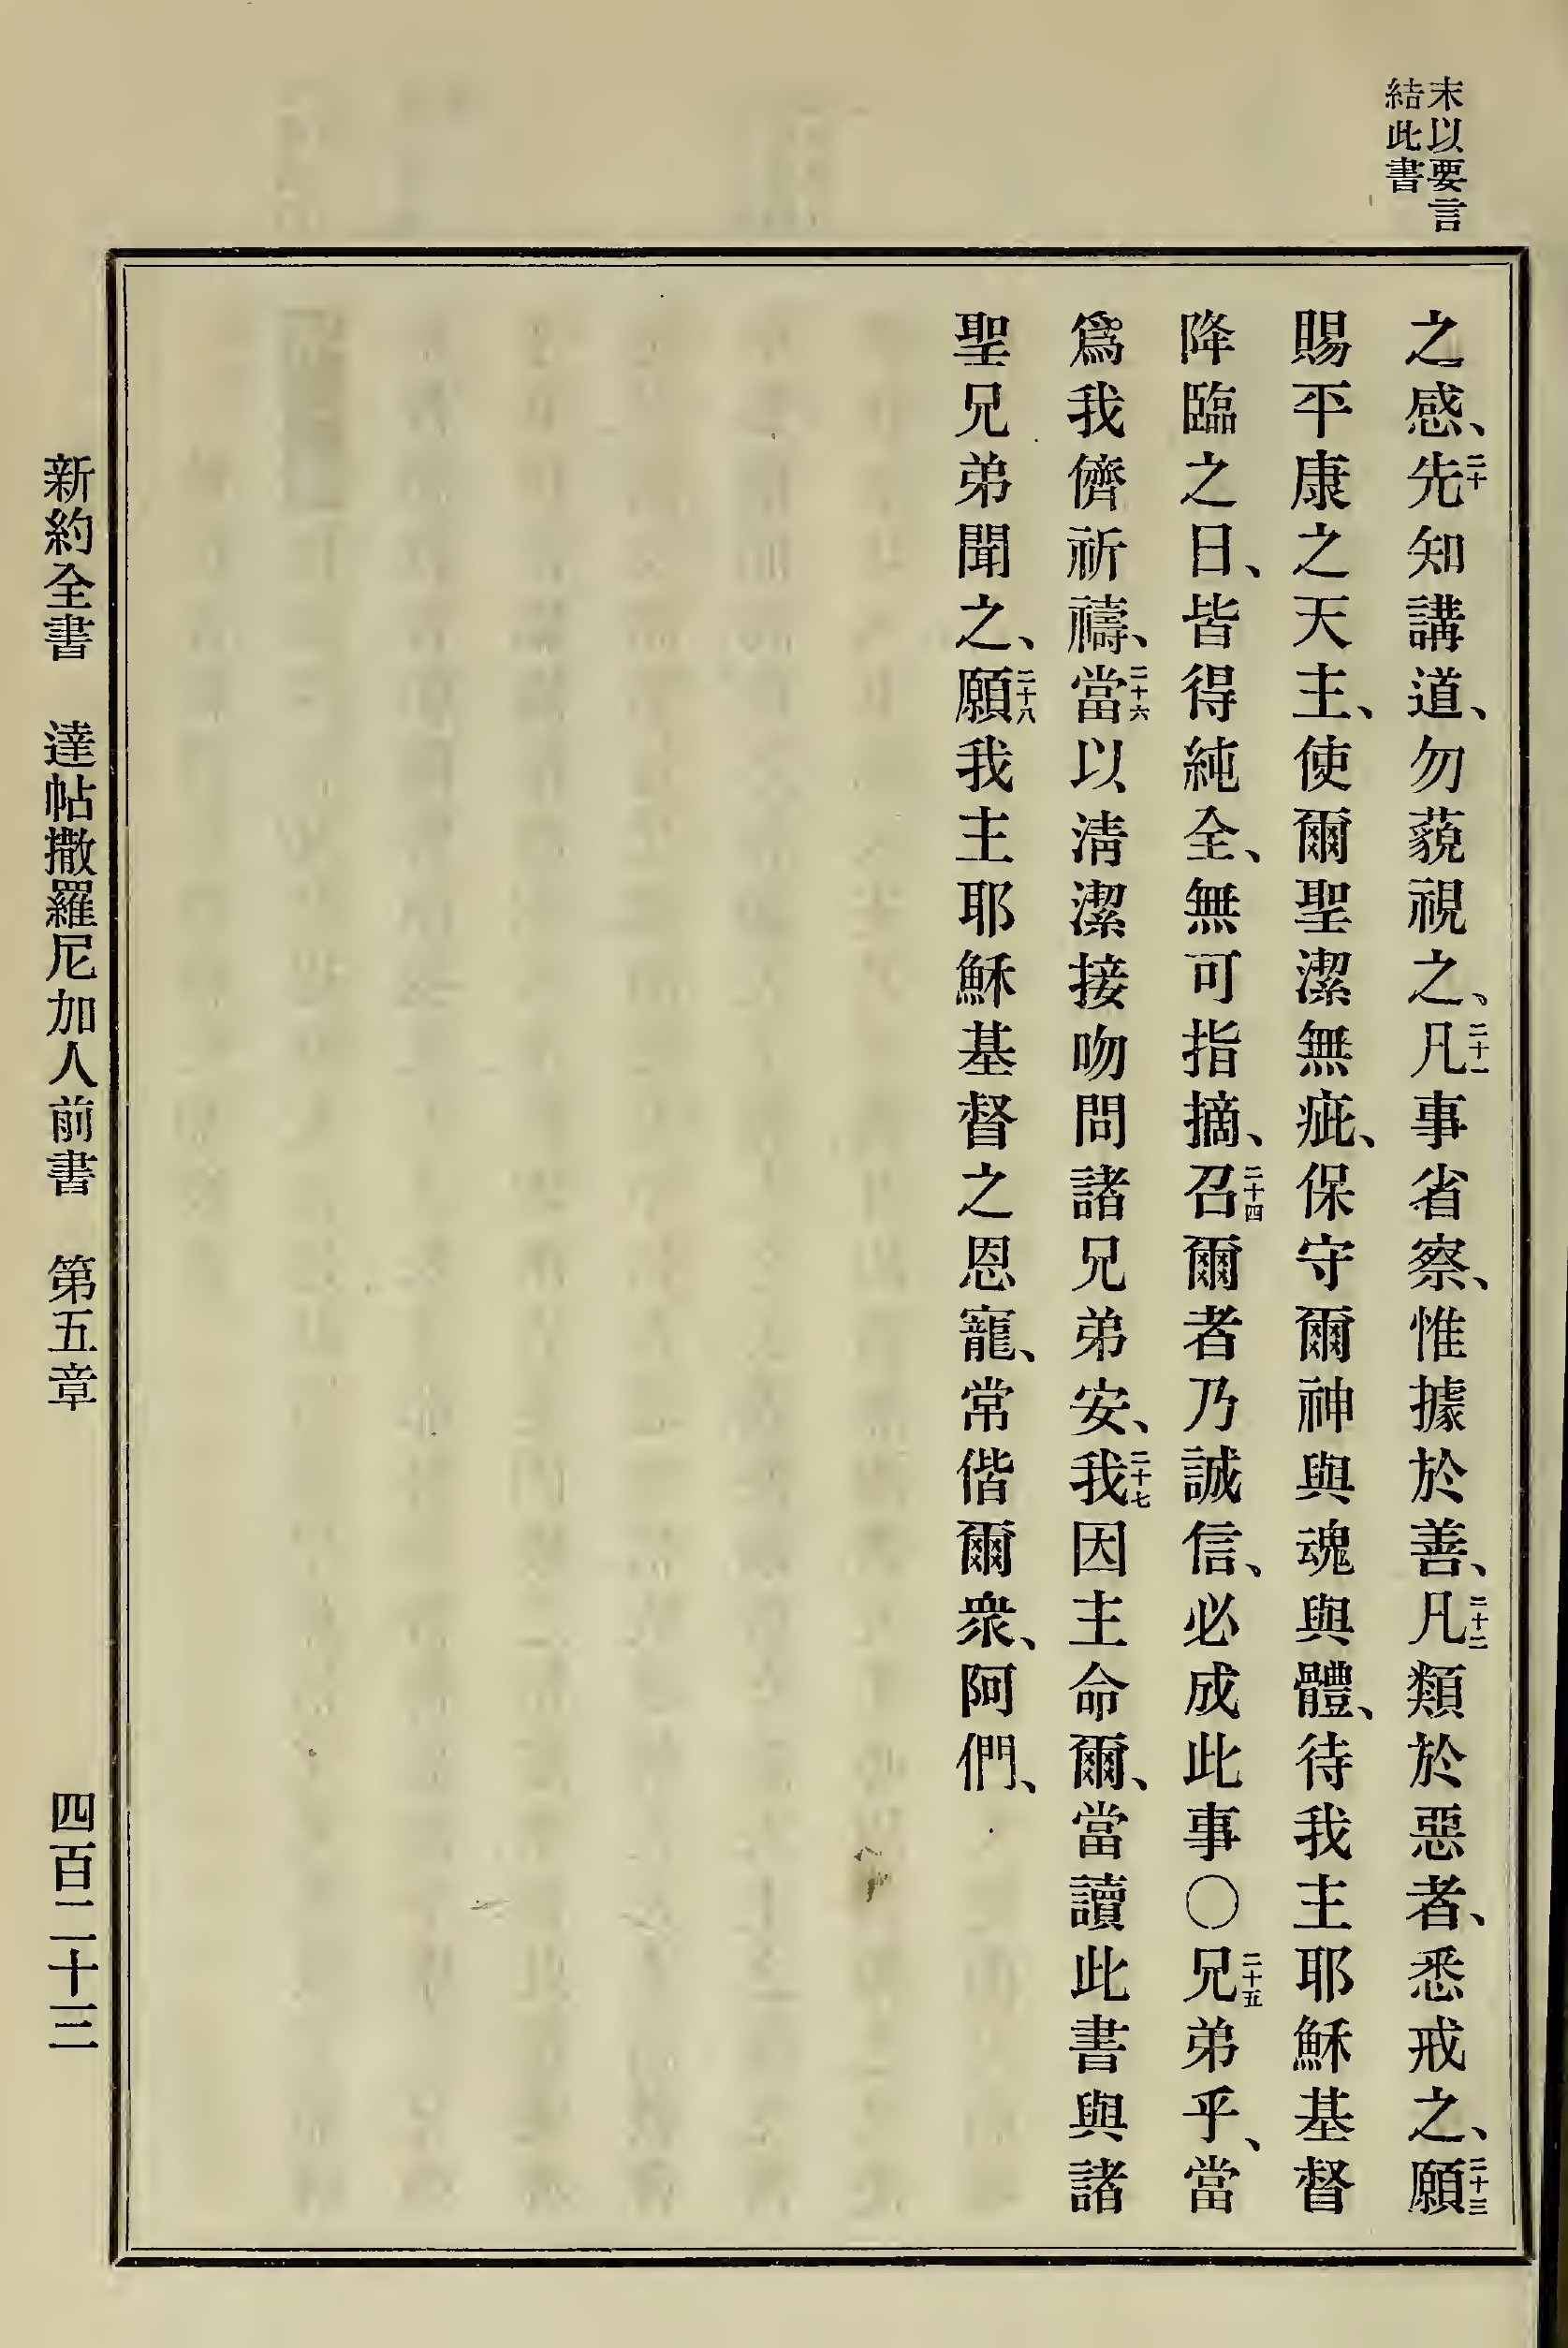 末以要言
結此書
之感、二十先知講道、勿藐視之、二十一凡事省察、惟據於善、二十二凡類於惡者、悉戒之、二十三願
賜平康之天主、使爾聖潔無疵、保守爾神與魂與體、待我主耶穌基督
降臨之日、皆得純全、無可指摘、二十四召爾者乃誠信、必成此事〇二十五兄弟乎、當
爲我儕祈禱、二十六當以淸潔接吻問諸兄弟安、二十七我因主命爾、當讀此書與諸
聖兄弟聞之、二十八願我主耶穌基督之恩寵、常偕爾衆、阿們、
新約全書 達帖撒羅尼加人前書 第五章 四百二十三